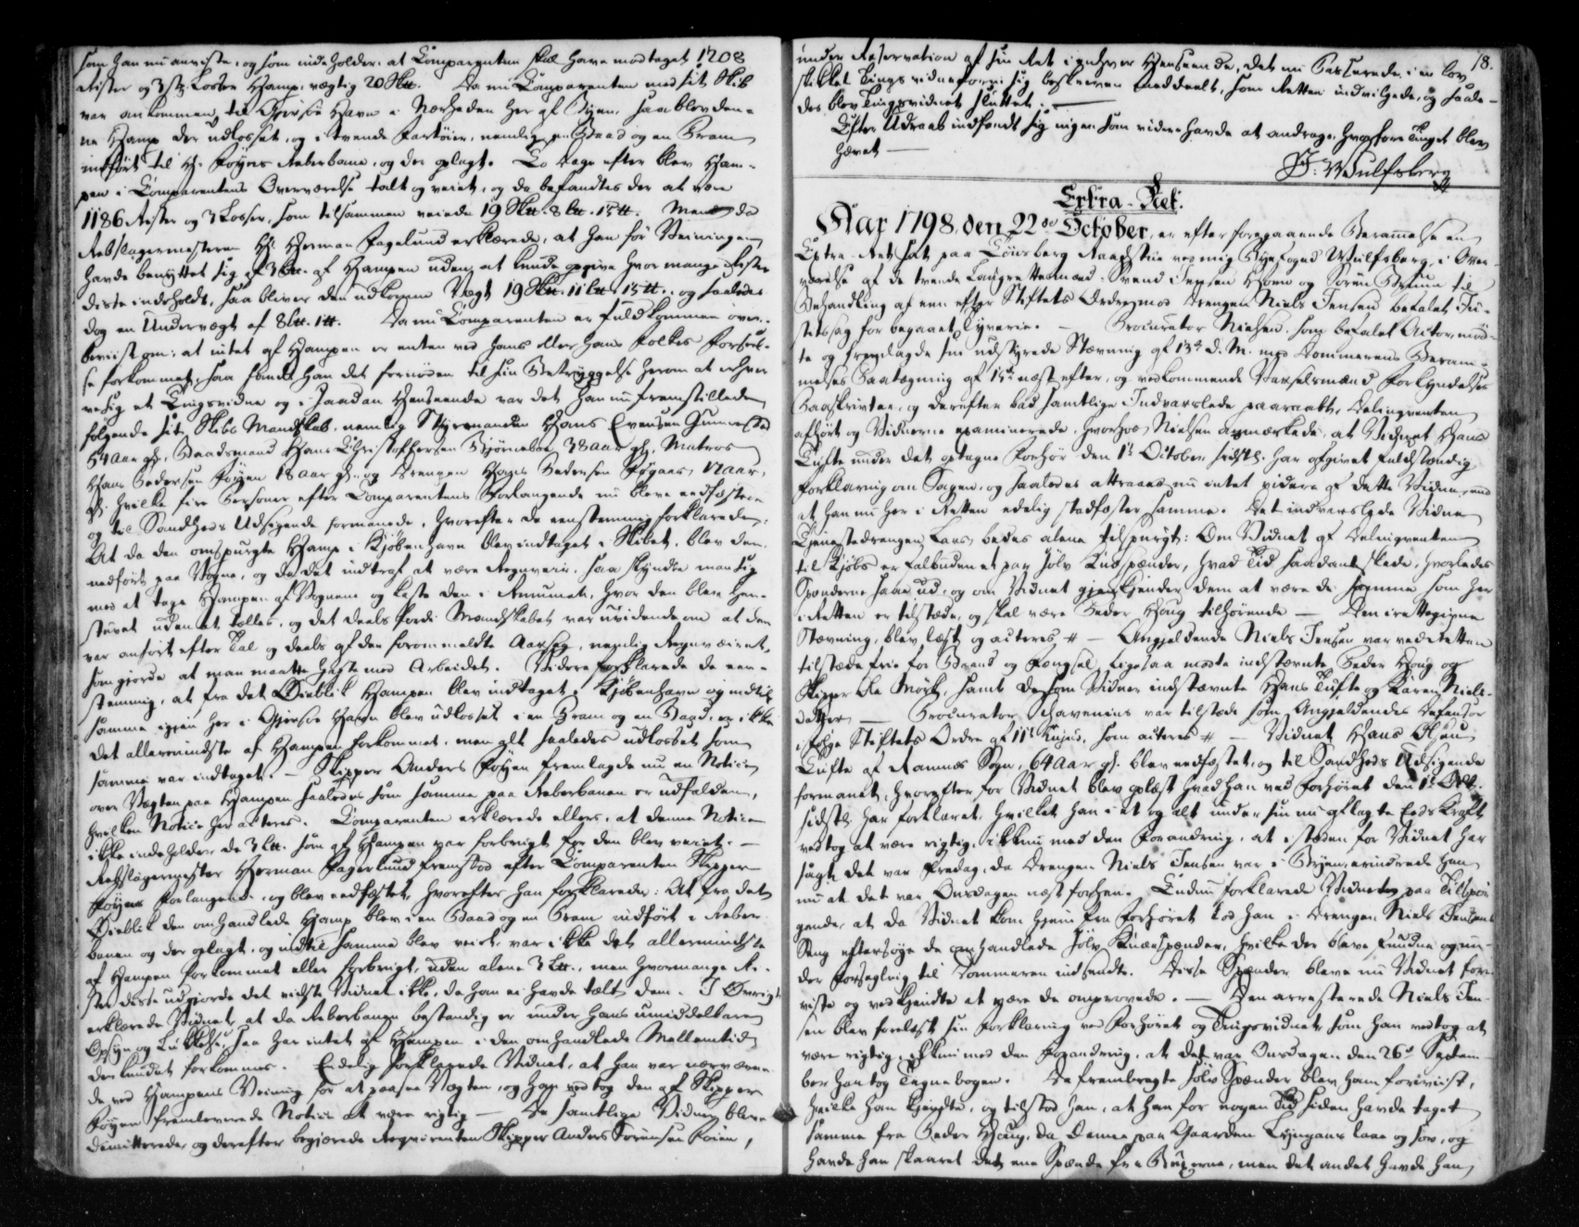 som han nu anviste, og som indeholder: at Comparenten skal have modtaget 1208
Rister og 3 st. Losser Hamp, vægtig 20 Sk℔. Da nu Comparenten med sit Skib
var ankommen til Havn i Nærheden her af Byen, saa blev den-
ne Hamp der udlosset, og i tvende Fartøier, nemlig en Baad og en Pram
indført til Hr. Føyns Reberbane, og der oplagt. To Dage efter blev Ham-
pen i Comparentens Overværelse talt og veiet, og da befandtes der at være
1186 Rister og 3 Losser, som tilsammen veiede 19 Sk℔. 8 L℔. 15 ℔. Men da
Rebslagermesteren Hr. Herman Fagerlund erklærede, at han før Veiningen
havde benyttet sig af 3 L℔. af Hampen uden at kunde opgive hvor mange Rister
disse indeholdt, saa bliver den udkomne Vægt 19 Sk℔. 11 L℔. 15 ℔. og saaledes
dog en Undervægt af 8 L℔. 1 ℔. Da nu Comparenten er fuldkommen over-
beviist om: at intet af Hampen er enten ved hans eller hans Folkes Forsøm-
se forkommet, saa fandt han det fornøden til sin Betryggelse herom at erhver-
ve sig et Tingsvidne og i saadan Henseende var det han nu fremstillede
følgende sit Skibs Mandskab, nemlig Styrmanden Hans Evensen Gunnersrød
54 Aar gl., Baadsmand Hans Christophersen Bjørneboe 38 Aar gl., Matros
Hans Pedersen Føyen 18 Aar gl. og Drengen Hans Pedersen 17 Aar
gl. hvilke fire Personer efter Comparentens Forlangende nu bleve eedfæstede
og til Sandheds Udsigende formanede, hvorefter de eenstemmig forklarede:
At da den omspurgte Hamp i Kjøbenhavn blev indtaget i Skibet, blev den
nedført paa Vogne, og da det indtraf at være Regnveir, saa skyndte man sig
med at tage Hampen af Vognene og kaste den i Rummet, hvor den blev hen-
stuvet uden at tælles, og det deels fordi Mandskabet var uvidende om at den
var anført efter Tal og deels af den forommeldte Aarsag, nemlig Regnveiret,
som gjorde at man maatte haste med Arbeidet. Videre forklarede de een-
stemmig, at fra det Øieblik Hampen blev indtaget i Kjøbenhavn og indtil
samme igjen her i Havn blev udlosset i en Pram og en Baad, er ikke
det allermindste af Hampen forkommet, men alt saaledes udlosset som
samme var indtaget. — Skipper Anders Føyen fremlagde nu en Notice
over Vægten paa Hampen saaledes som samme paa Reberbanen er udfalden,
hvilken Notice her acteres. Comparenten erklærede ellers, at denne Notice
ikke indeholder de 3 L℔. som af Hampen var forbrugt før den blev veiet. —
Rebslagermester Herman Fagerlund fremstod efter Comparenten Skipper
Føyens Forlangende, og blev eedfæstet, hvorefter han forklarede: At fra det
Øieblik den omhandlede Hamp blev i en Baad og en Pram indført i Reber-
banen og der oplagt, og indtil samme blev veiet, var ikke det allermindste
af Hampen forkommet eller forbrugt, uden alene 3 L℔., men hvormange Ri-
ster disse udgjorde det vidste Vidnet ikke, da han ei havde talt dem. I Øvrigt
erklærede Vidnet, at da Reberbanen bestandig er under hans umiddelbare
Opsyn og Lukkelse, saa har intet af Hampen i den omhandlede Mellemtid
der kundet forkomme. Endelig forklarede Vidnet, at han var nærværen-
de ved Hampens Veining for at passe Vægten, og han vedtog den af Skipper
Føyen fremleverede Notice at være rigtig. — De samtlige Vidner bleve
dimitterede, og derefter begjærede Reqvirenten Skipper Anders Sørensen Føien,
18.
under Reservation af sin Ret i enhver Henseende, det nu Passerede i en lov-
skikket Tingsvidneform sig beskreven meddeelt, som Retten indvilgede, og saale-
des blev Tingsvidnet sluttet. —
Efter Udraab indfandt sig ingen som videre havde at andrage, hvorfore Tinget blev
hævet —
Wulfsberg
Extra-Ret.
Aar 1798. den 22de October, er efter foregaaende Berammelse en
Extra-Ret sat paa Tønsberg Raadstue ved mig Byefoged Wulfsberg, i Over-
værelse af de tvende Laugrettesmænd: Svend Jensen og Søren til
Behandling af en efter Stiftets Ordre mod Drengen Niels Jensen befalet Ju-
stitssag for begaaet Tyverie. — Procurator Nielsen som befalet Actor mød-
te og fremlagde sin udstedede Stævning af 13de d. M. med Dommerens Beram-
melses Paategning af 15de næstefter, og vedkommende Varselsmænd Forkyndelses
Paaskrivter, og derefter bad samtlige Indvarslede paaraabt, Delinqventen
afhørt og Vidnerne examinerede, hvorhos Nielsen anmærkede, at Vidnet Hans
Tufte under det optagne Forhør den 1te October sidstl. har afgivet fuldstændig
Forklaring om Sagen, og saaledes attraaes nu intet videre af dette Vidne, end
at han nu her i Retten edelig stadfæster samme. Det indvarslede Vidne
Tjenestedrengen Lars bedes alene tilspurgt: Om Vidnet af Delinqventen
til Kjøbs er falbuden et par Sølv Knæspænder, hvad Tid saadant skede, hvorledes
Spænderne saae ud, og om Vidnet gjenkjender dem at være de samme som her
i Retten er tilstæde, og skal være Peder Houg tilhørende — Den irettegivne
Stævning, blev læst og acteres # — Angjeldende Niels Jensen var ved Retten
tilstæde frie for Baand og Fængsel, ligesaa mødte indstævnte Peder Houg og
Skipper Ole Mørk, samt de som Vidner indstævnte Hans Tufte og Karen Niels-
datter — Procurator var tilstæde som Angjeldendes Defensor
ifølge Stiftets Ordre af 11te hujus, som acteres # — Vidnet Hans Olsen
Tufte af Ramnæs Sogn, 64 Aar gl. blev eedfæstet, og til Sandheds Udsigende
formanet, hvorefter for Vidnet blev oplæst hvad han ved Forhøret den 1te Octbr.
sidstl. har forklaret, hvilket han i et og alt under sin nu aflagte Eeds Kraft
vedtog at være rigtig, ikkun med den Forandring, at isteden for Vidnet har
sagt det var Fredag, da Drengen Niels Jensen var i Byen, erindrede han
nu at det var Onsdagen næst forhen. Endnu forklarede Vidnet paa Tilspør-
gende, at da Vidnet kom hjem fra Forhøret lod han i Drengen Niels Jensens
Seng eftersøge de omhandlede Sølv Knæespænder, hvilke der bleve fundne og un-
der Forsegling til Dommeren indsendte. Disse Spænder bleve nu Vidnet fore-
viste og vedkjendte at være de omprovede. — Den arresterede Niels Jen-
sen blev forelæst sin Forklaring ved Forhøret og Tingsvidnet, som han vedtog at
være rigtig, ikkun med den Forandring, at det var Onsdagen den 26de Septem-
ber han tog Tegnebogen. De frembragte Sølv Spænder blev ham foreviist,
hvilke han kjendte, og tilstod han, at han for nogen Tid siden havde taget
samme fra Peder Houg, da denne paa Gaarden laae og sov, og
havde han skaaret det ene Spænde fra Buxerne, men det andet havde han